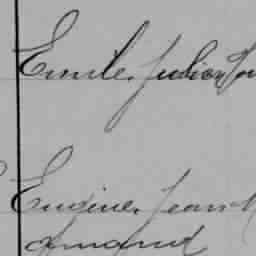 Emile Julien
Eugène Jean
Armand